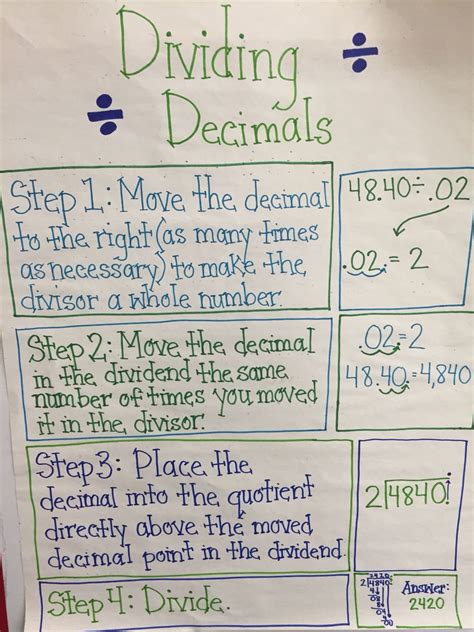 Dividing ÷
÷ Decimals
Step 1: Move the decimal
to the right (as many times
as necessary) to make the
divisor a whole number.
48.40 ÷ .02
.02. = 2
Step 2: Move the decimal
in the dividend the same
number of times you moved
it in the divisor.
.02. = 2
48.40. = 4,840
Step 3: Place the
decimal into the quotient
directly above the moved
decimal point in the dividend.
2⟌4840.
Step 4: Divide.
2420
2⟌4840
Answer:
2420